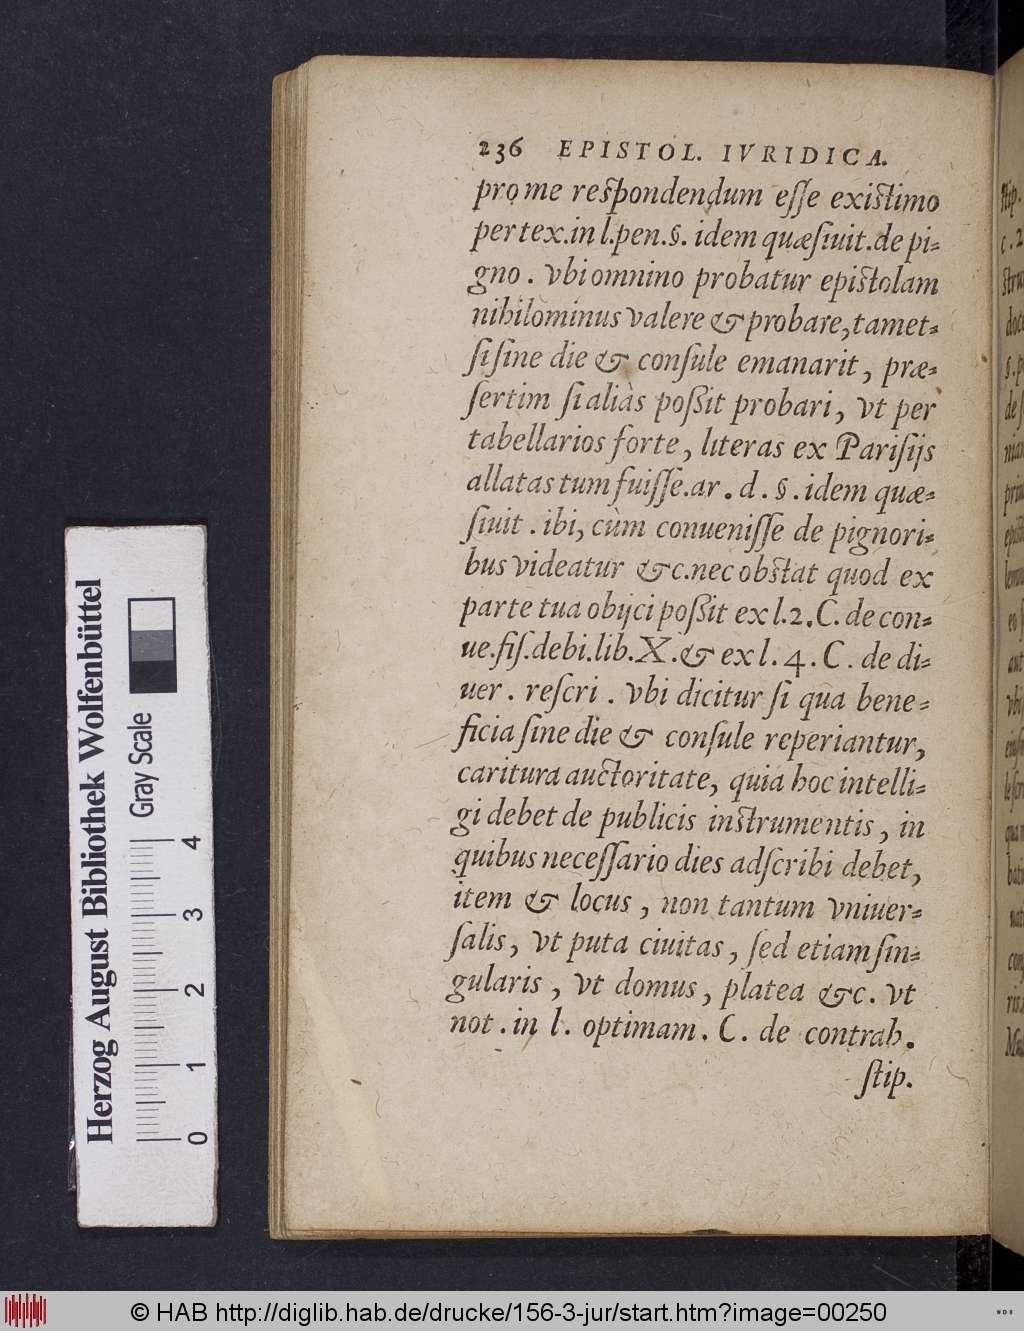 236 EPISTOL. IVRIDICA.
pro me respondendum esse existimo
per tex. in l. pen. §. idem quæsiuit. de pi-
gno. vbi omnino probatur epistolam
nihilominus valere & probare, tamet-
si sine die & consule emanarit, præ-
sertim si aliàs possit probari, vt per
tabellarios forte, literas ex Parisijs
allatas tum fuisse. ar. d. §. idem quæ-
siuit. ibi, cùm conuenisse de pignori-
bus videatur &c. nec obstat quod ex
parte tua obijci possit ex l. 2. C. de con-
ue. fis. debi. lib. X. & ex l. 4. C. de di-
uer. rescri. vbi dicitur si qua bene-
ficia sine die & consule reperiantur,
caritura auctoritate, quia hoc intelli-
gi debet de publicis instrumentis, in
quibus necessario dies adscribi debet,
item & locus, non tantum vniuer-
salis, vt puta ciuitas, sed etiam sin-
gularis, vt domus, platea &c. vt
not. in l. optimam. C. de contrah.
stip.
Herzog August Bibliothek Wolfenbüttel
Gray Scale
0 1 2 3 4
© HAB http://diglib.hab.de/drucke/156-3-jur/start.htm?image=00250